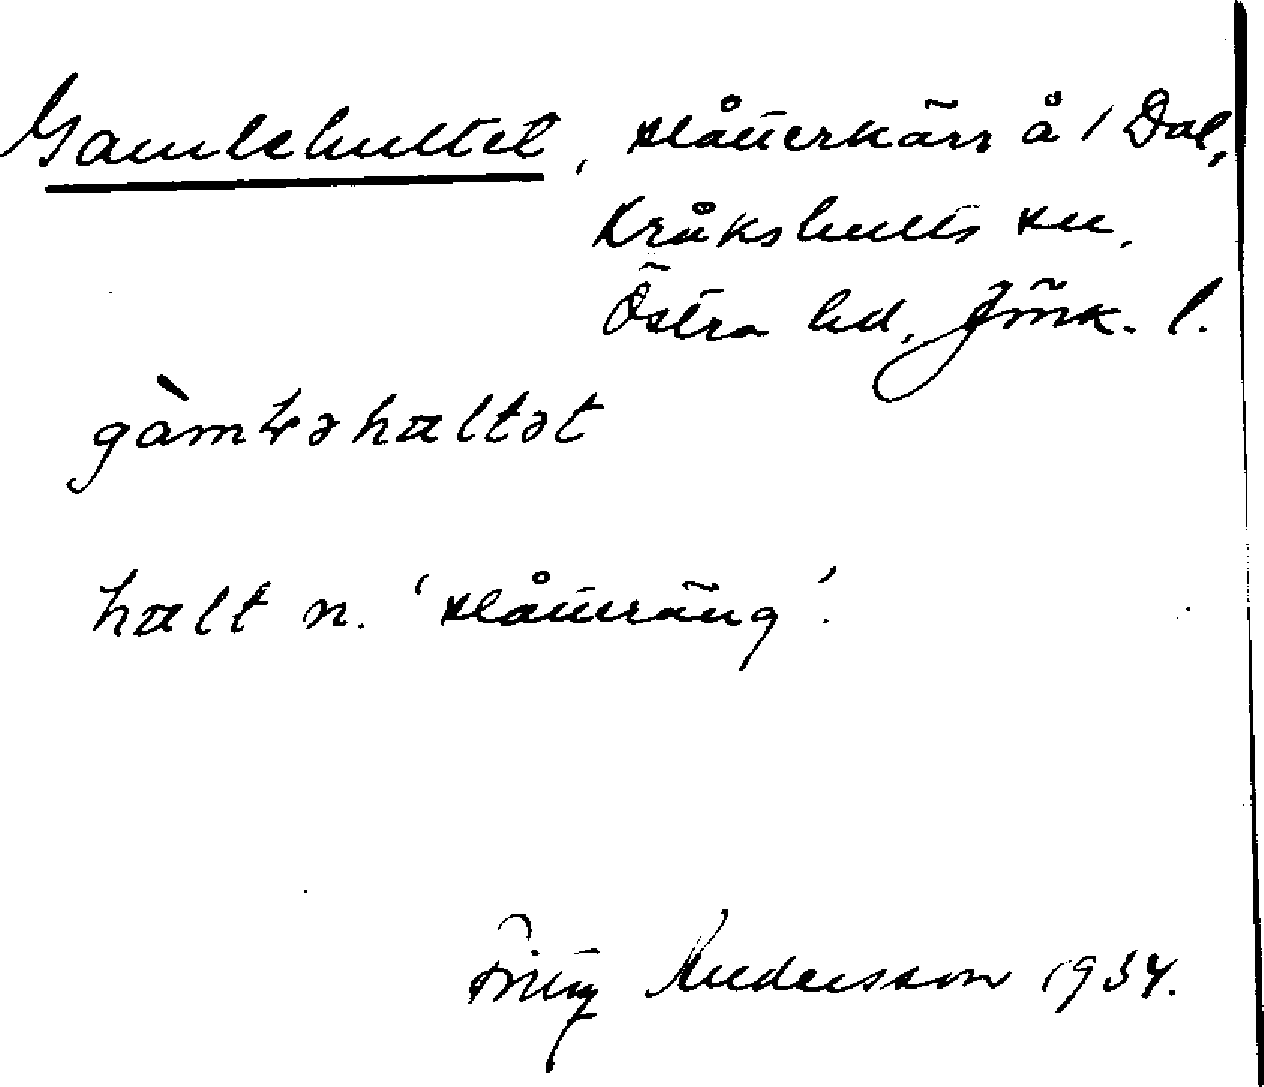 Gamlehultet, slåtterkärr å 1 Dal,
Kråkshults sn.
Östra hd, Jönk. l.
gàmɫəhaltət
halt n. 'slåtteräng'.
Fritz Andersson 1934.